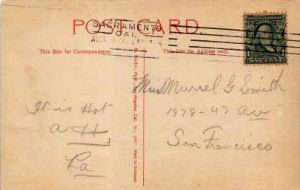 POST CARD.
SACRAMENTO
CAL.
This Side for Correspondence.
This Side for Address only.
Miss Murrel G Smith
1978-47 Av
San Francisco
It is Hot
a H
La